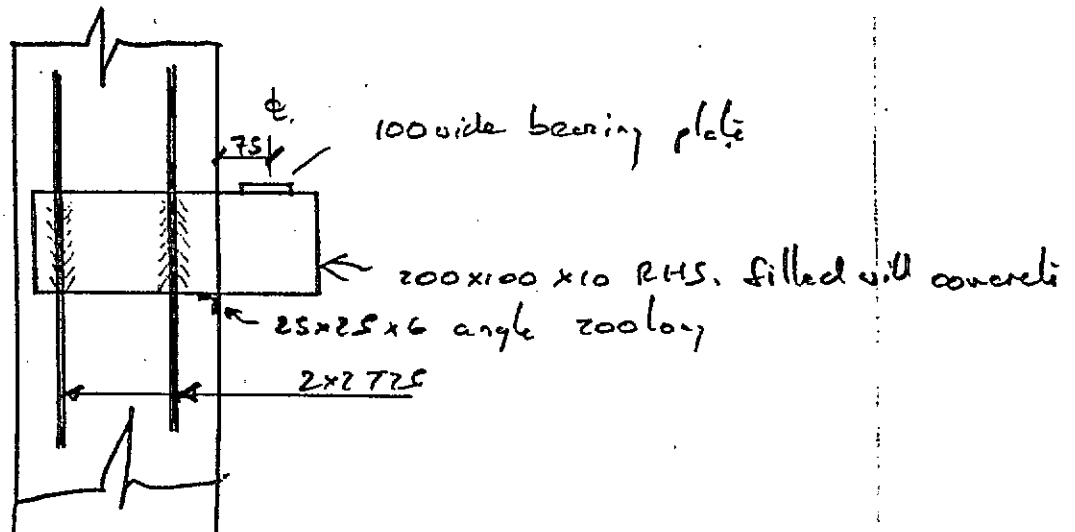 ℄
75
100 wide bearing plate
200x100x10 RHS. filled with concrete
25x25x6 angle 200 long
2x2 T25